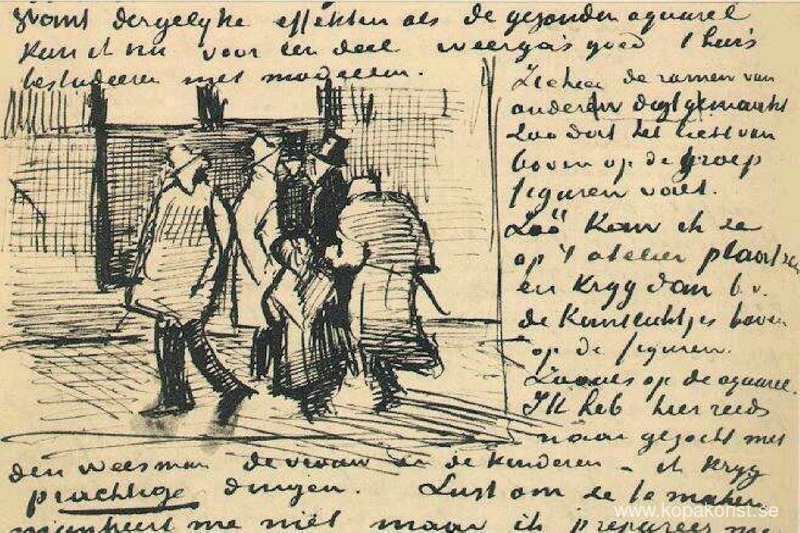 want dergelyke effekten als de gezonden aquarel
kan ik nu voor een deel weergaas goed thuis
bestudeeren met modellen.
Zie hier de ramen van
onderen digt gemaakt
Zoo dat het licht van
boven op de groep
figuren valt.
Zóó kan ik ze
op 't atelier plaatsen
en kryg dan b.v.
de kantlichtjes boven
op de figuren.
Zooals op de aquarel.
Ik heb hier reeds
naar gezocht met
den weesman de vrouw en de kinderen – ik kryg
prachtige dingen. Lust om ze te maken
mankeert me niet maar ik prepareer me
www.kopakonst.se